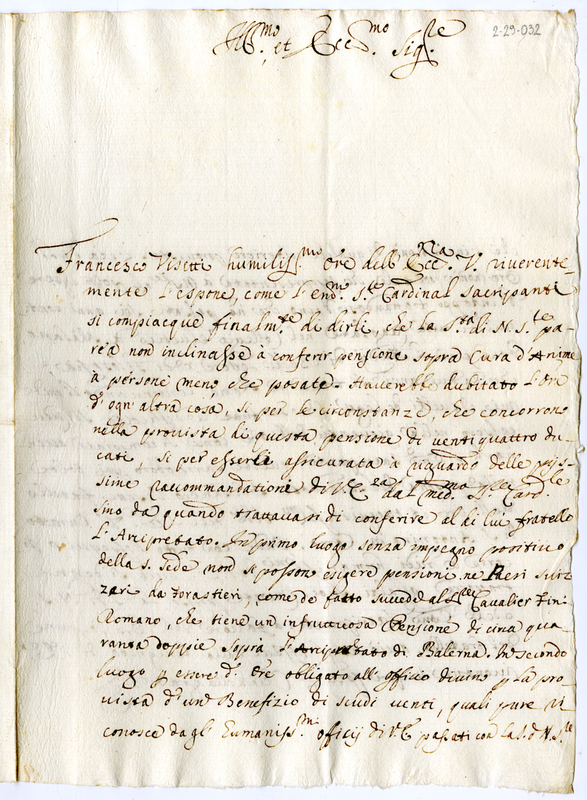 2-29-032
Ill.mo et Ecc.mo Sig.re
Francesco Visetti humiliss.mo Ore dell'Ecc.za V. riverente-
mente l'espone, come l'em.mo S.r Cardinal Sacripanti
si compiacque finalm.te di dirle, che la S.tà di N. S.re pa-
rea non inclinasse à conferir pensione sopra Cura d'Anime
à persone meno che posate. Haverebbe dubitato l'Ore
d'ogn'altra cosa, si per le circonstanze, che concorrono
nella provista di questa pensione di venti quattro du-
cati, si per esserle assicurata à riguardo delle
sime raccommandationi di V. E.za dal med.mo S.r Card.le
sino da quando trattavasi di conferire al di lui fratello
l'Arcipretato. In primo luogo senza impegno positivo
della S. Sede non si posson esigere pensioni ne Paesi Sviz-
zari da forastieri, come de fatto succede al Cavalier
Romano, che tiene un infruttuosa Pensione di circa qua-
ranta doppie sopra l'Arcipretato di Balerna. In secondo
luogo p essere d.o Ore obligato all'officio divino p la pro-
vista d'un Benefizio di scudi venti, quali pure ri
conosce dagl'humaniss.mi officij di V. E. passati con la S. di N. S.re